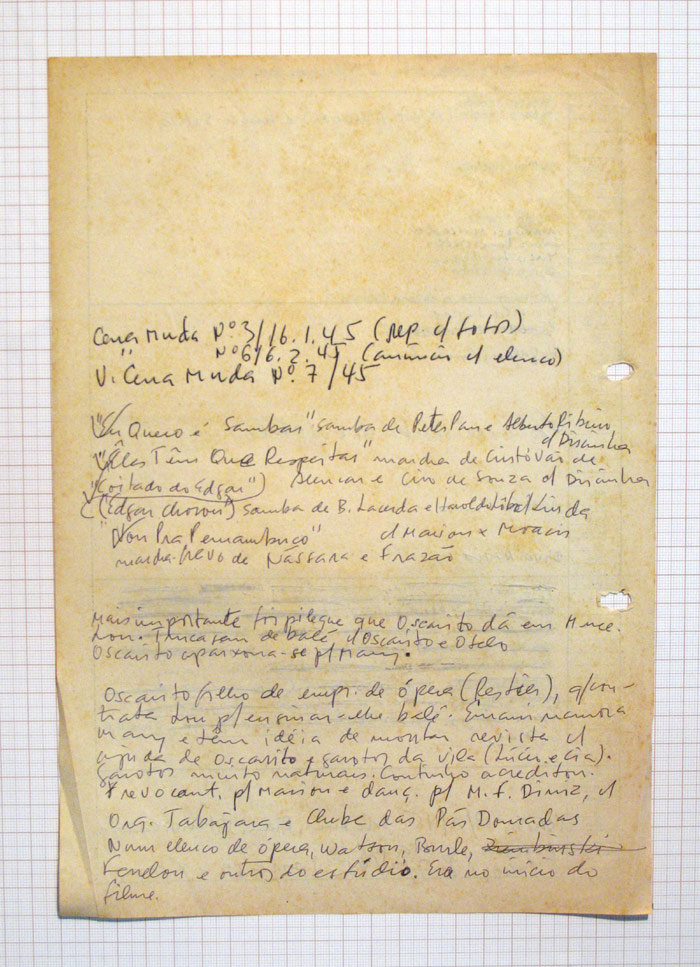 Cena Muda Nº 3/16.1.45 (rep. c/ fotos)
" Nº 6/6.2.45 (anúncio c/ elenco)
V. Cena Muda Nº 7/45
"Eu Quero é Sambar" samba de Peter Pan e Alberto Ribeiro
c/ Dircinha
"Eles Têm Que Respeitar" marcha de Cristóvão de
"Coitado do Edgar") Alencar e Ciro de Souza c/ Dircinha
(Edgar chorou") samba de B. Lacerda e Haroldo Lobo c/ Linda
"Vou Pra Pernambuco" c/ Marion x Moraes
marcha-frevo de Nássara e Frazão
Mais importante foi pileque que Oscarito dá em
de balé d'Oscarito e Otelo
Oscarito apaixona-se p/ Mary.
Oscarito filho de empr. de ópera (Restier), q/ con-
trata p/ ensinar-lhe balé. namora
Mary e têm idéia de montar revista c/
ajuda de Oscarito e garotos da vila (e Cia).
Garotos muito naturais. Continho acreditou.
Frevo cant. p/ Marion e danç. p/ M. F. Diniz, c/
Orq. Tabajara e Clube das Pás Douradas
Num elenco de ópera, Watson, Burle, Ziembinski
Fenelon e outros do estúdio. Era no início do
filme.